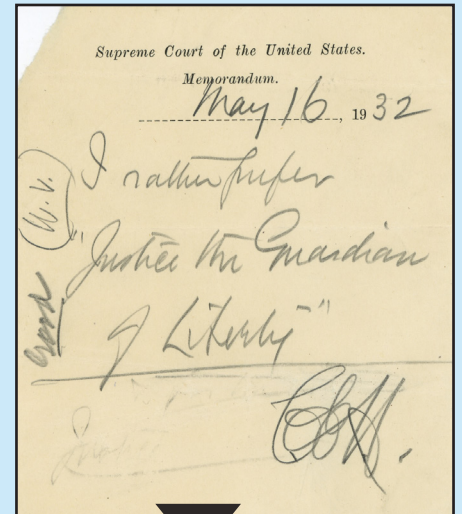 Supreme Court of the United States.
Memorandum.
May 16, 1932
I rather prefer
"Justice the Guardian
of Liberty"
C E H.
(W. V.)
Good